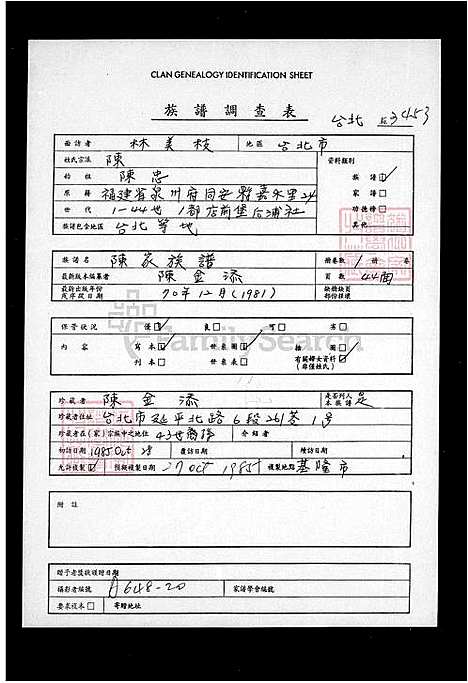 CLAN GENEALOGY IDENTIFICATION SHEET
族譜調查表
台北 3453
面訪者 林美枝 地區 台北市
姓氏宗派 陳 資料類別
始祖 陳忠 族譜☑
原籍 福建省泉州府同安縣嘉禾里24 家譜□
世代 1-44世 1都店前堡后浦社 功德榜□
族譜包含地區 台北等地 其他
譜名 陳家族譜 冊卷數 1冊 卷
最新版本編纂者 陳金添 頁數 44面
最新出版年份或序跋日期 70年12月(1981) 缺冊缺頁部份採樣
保管狀況 優☑ 良□ 可□ 劣□
內容 寫本☑ 世系圖☑ 插圖□
刊本□ 世系表□ 有關婦女資料☑(非僅姓氏)
FamilySearch
珍藏者 陳金添 是否列入本族譜 是
珍藏者住址 台北市延平北路6段261巷1号
珍藏者在(家)宗族中之地位 43世裔孫 介紹者
初訪日期 1985 Oct 28 覆訪日期 續訪日期
允許複製☑ 預擬複製日期 27 Oct 1985 複製地點 基隆市
附註
贈予者獎狀頒贈日期
攝影者編號 A648-20 家譜學會編號
要求復本□ 寄贈地址